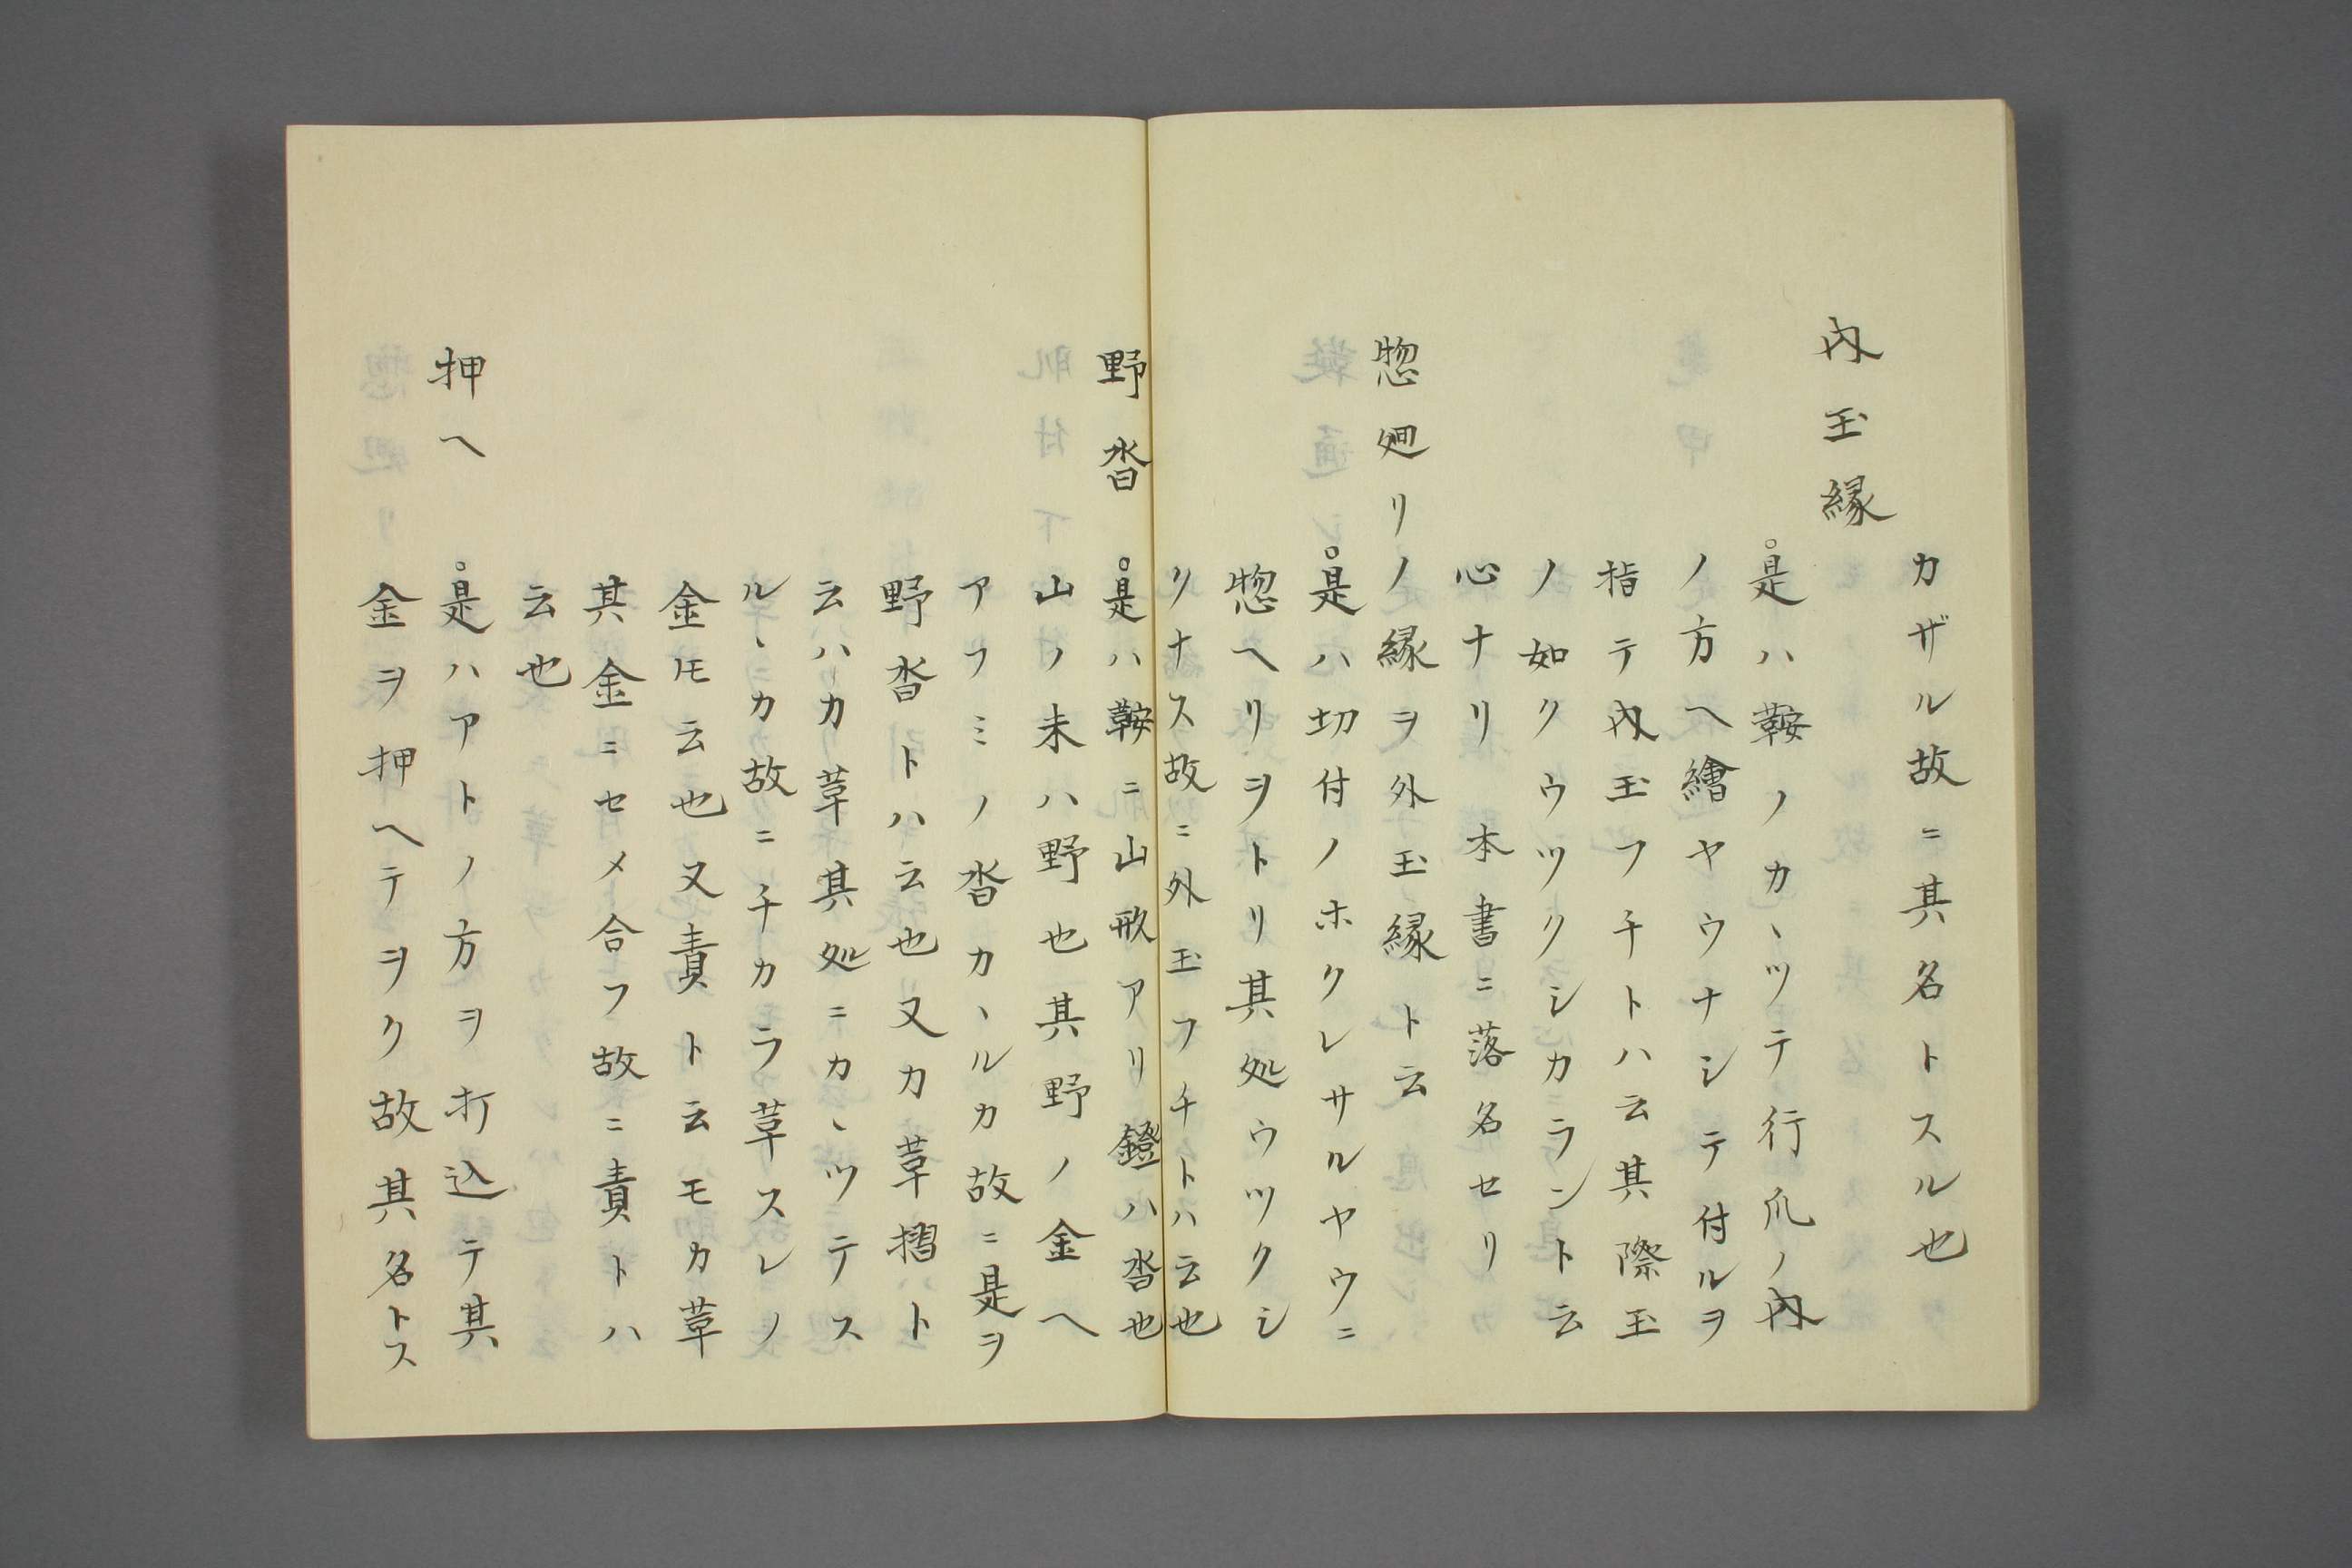 カザル故ニ其名トスル也
内玉縁
○是ハ鞍ノカヽツテ行爪ノ内
ノ方ヘ繪ヤウナシテ付ルヲ
指テ内玉フチトハ云其際玉
ノ如クウツクシカラント云
心ナリ 本書ニ落名セリ
惣廻リノ縁ヲ外玉縁ト云
○是ハ切付ノホクレサルヤウニ
惣ヘリヲトリ其処ウツクシ
クナス故ニ外玉フチトハ云也
野沓 ○是ハ鞍ニ山形アリ鐙ハ沓也
山ノ末ハ野也其野ノ金ヘ
アフミノ沓カヽルカ故ニ是ヲ
野沓トハ云也又カ草摺ト
云ハカ草其処ニカヽツテス
ルヽカ故ニチカラ草スレノ
金モ云也又責ト云モカ草
其金ニセメ合フ故ニ責トハ
云也
押ヘ ○是ハアトノ方ヲ打込テ其
金ヲ押ヘテヲク故其名トス